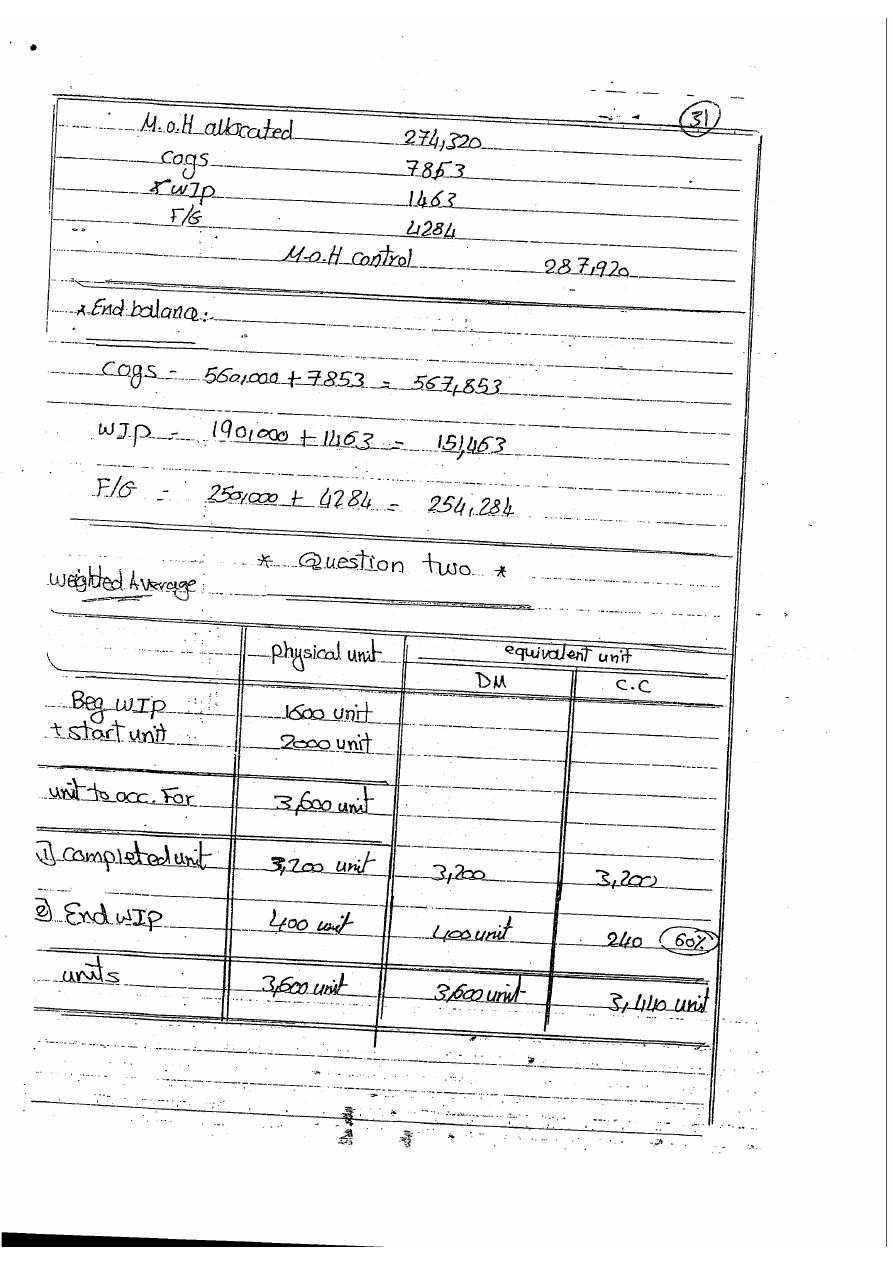 31
M.o.H allocated 274,320
cogs 7853
WIP 1463
F/G 4284
M.o.H control 287,920
* End balance:
cogs = 560,000 + 7853 = 567,853
WIP = 190,000 + 1463 = 151,463
F/G = 250,000 + 4284 = 254,284
* Question two *
weighted Average
physical unit equivalent unit
DM C.C
Beg WIP 1600 unit
+ start unit 2000 unit
unit to acc. For 3,600 unit
1) completed unit 3,200 unit 3,200 3,200
2) End WIP 400 unit 400 unit 240 60%
units 3,600 unit 3,600 unit 3,440 unit